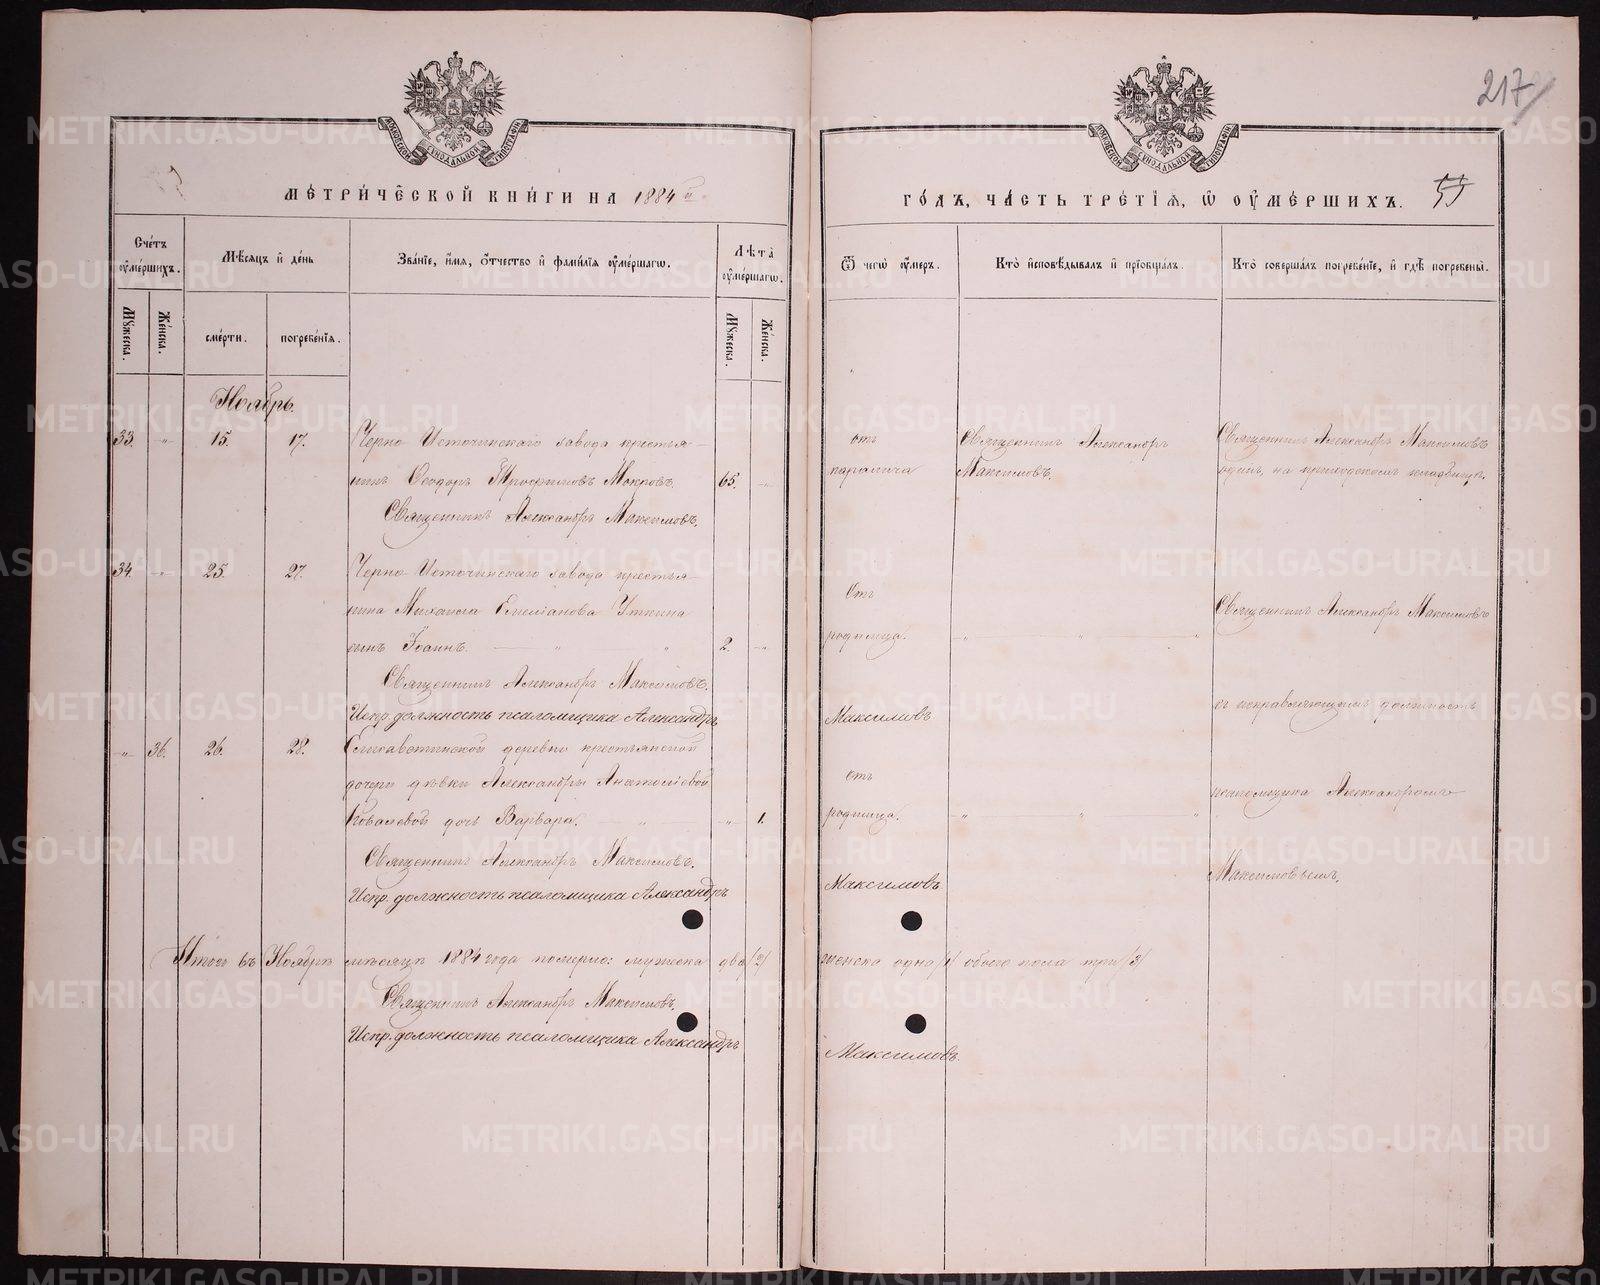 217
МЕТРИЧЕСКОЙ КНИГИ НА 1884 й
ГОДЪ, ЧАСТЬ ТРЕТІЯ, Ѿ ОУМЕРШИХЪ. 55
Счетъ оумершихъ.
Мѣсяцъ и день
Званіе, имя, отчество и фамилія оумершагѡ.
Лѣта оумершагѡ.
Ѿ чегѡ оумеръ.
Кто исповѣдывалъ и пріобщалъ.
Кто совершалъ погребеніе, и гдѣ погребены.
Мꙋжеска.
Женска.
смерти.
погребенія.
Мꙋжеска.
Женска.
Ноябрь.
33. -"- 15. 17. Черно Источинскаго завода крестья-
нинъ Ѳеодоръ Трофимовъ Мокровъ 65. -"-
Священникъ Александръ Максимовъ.
отъ
паралича
Священникъ Александръ
Максимовъ.
Священникъ Александръ Максимовъ
одинъ, на приходскомъ кладбищѣ.
34. -"- 25. 27. Черно Источинскаго завода крестья-
нина Михаила Емеліанова Уткина
сынъ Іоаннъ. 2. -"-
Священникъ Александръ Максимовъ.
Испр. должность псаломщика Александръ
Отъ
родимца.
Максимовъ
Священникъ Александръ Максимовъ
съ исправляющимъ должность
-"- 36. 26. 28. Елисаветинской деревни крестьянской
дочери дѣвки Александры Анатоліевой
Ковалевой дочь Варвара. -"- 1.
Священникъ Александръ Максимовъ.
Испр. должность псаломщика Александръ
отъ
родимца.
Максимовъ
псаломщика Александромъ
Максимовымъ.
Итого въ Ноябрѣ мѣсяцѣ 1884 года померло: мужеска два /2/ женска одна /1/ обоего пола три /3/
Священникъ Александръ Максимовъ.
Испр. должность псаломщика Александръ
Максимовъ.
METRIKI.GASO-URAL.RU